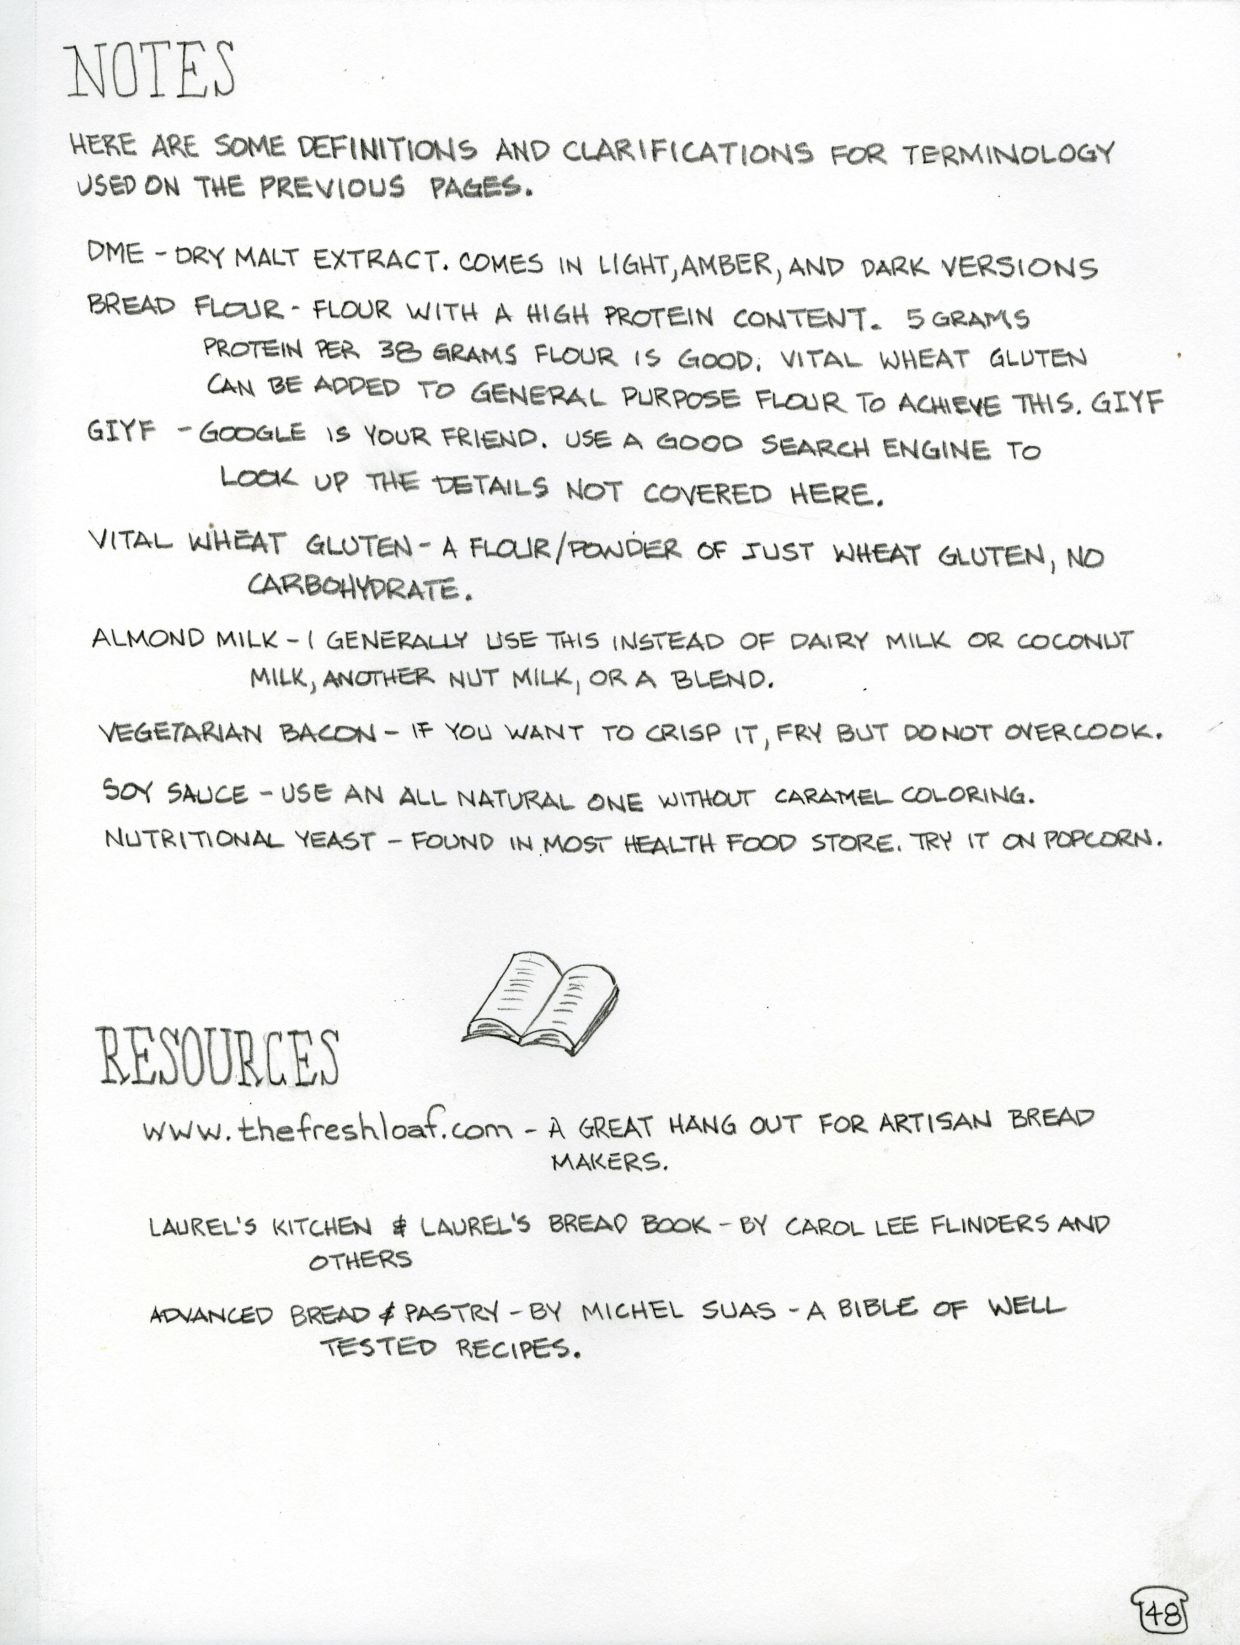 NOTES
HERE ARE SOME DEFINITIONS AND CLARIFICATIONS FOR TERMINOLOGY
USED ON THE PREVIOUS PAGES.
DME - DRY MALT EXTRACT. COMES IN LIGHT, AMBER, AND DARK VERSIONS
BREAD FLOUR - FLOUR WITH A HIGH PROTEIN CONTENT. 5 GRAMS
PROTEIN PER 38 GRAMS FLOUR IS GOOD. VITAL WHEAT GLUTEN
CAN BE ADDED TO GENERAL PURPOSE FLOUR TO ACHIEVE THIS. GIYF
GIYF - GOOGLE IS YOUR FRIEND. USE A GOOD SEARCH ENGINE TO
LOOK UP THE DETAILS NOT COVERED HERE.
VITAL WHEAT GLUTEN - A FLOUR/POWDER OF JUST WHEAT GLUTEN, NO
CARBOHYDRATE.
ALMOND MILK - I GENERALLY USE THIS INSTEAD OF DAIRY MILK OR COCONUT
MILK, ANOTHER NUT MILK, OR A BLEND.
VEGETARIAN BACON - IF YOU WANT TO CRISP IT, FRY BUT DO NOT OVERCOOK.
SOY SAUCE - USE AN ALL NATURAL ONE WITHOUT CARAMEL COLORING.
NUTRITIONAL YEAST - FOUND IN MOST HEALTH FOOD STORE. TRY IT ON POPCORN.
RESOURCES
www.thefreshloaf.com - A GREAT HANG OUT FOR ARTISAN BREAD
MAKERS.
LAUREL'S KITCHEN & LAUREL'S BREAD BOOK - BY CAROL LEE FLINDERS AND
OTHERS
ADVANCED BREAD & PASTRY - BY MICHEL SUAS - A BIBLE OF WELL
TESTED RECIPES.
48